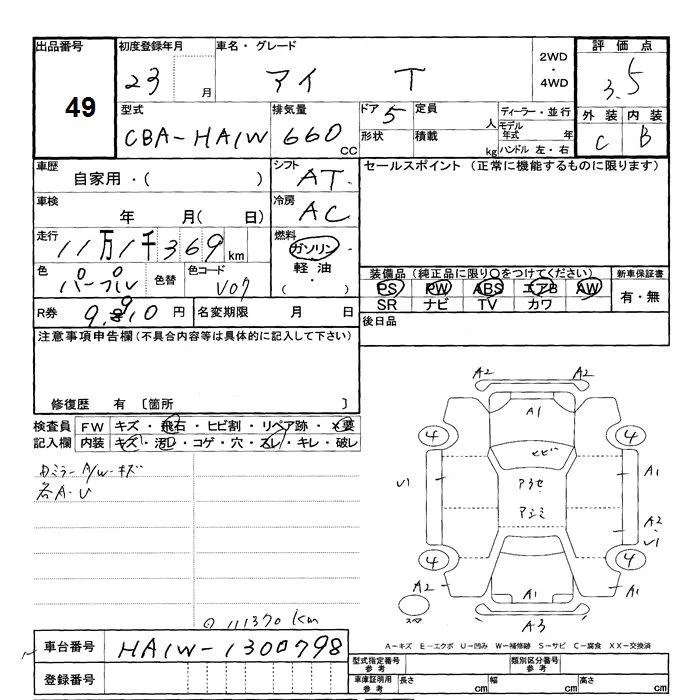 出品番号 初度登録年月 車名・グレード 2WD・4WD 評価点
49 23 月 アイ T 3.5
型式 排気量 ドア 5 定員 人 ディーラー・並行 外装 内装
CBA-HA1W 660 CC 形状 積載 kg モデル年式 年 C B
ハンドル 左・右
車歴 シフト セールスポイント (正常に機能するものに限ります)
自家用・( ) AT
車検 冷房
年 月( 日) AC
走行 燃料
11万1千369 km ガソリン・
色 色替 色コード 軽油・ 装備品 (純正品に限り○をつけてください) 新車保証書
パープル V07 ( ) PS PW ABS エアB AW 有・無
SR ナビ TV カワ
R券 9.910 円 名変期限 月 日 後日品
注意事項申告欄 (不具合内容等は具体的に記入して下さい)
修復歴 有 〔箇所 〕
検査員 FW キズ・飛石・ヒビ割・リペア跡・×要
記入欄 内装 キズ・汚レ・コゲ・穴・スレ・キレ・破レ
カミラーA/W-キズ
各A・U
A2 A2
A1
4 4
ヒビ
U1 A1
アウセ
アシミ
A2
U1
4 4
A2 A1 A1
A3
スペア
⊙ 111370 km
A-キズ E-エクボ U-凹み W-補修跡 S-サビ C-腐食 XX-交換済
車台番号 HA1W-1300798
型式指定番号 参考 類別区分番号 参考
登録番号 車庫証明用 参考 長さ cm 幅 cm 高さ cm